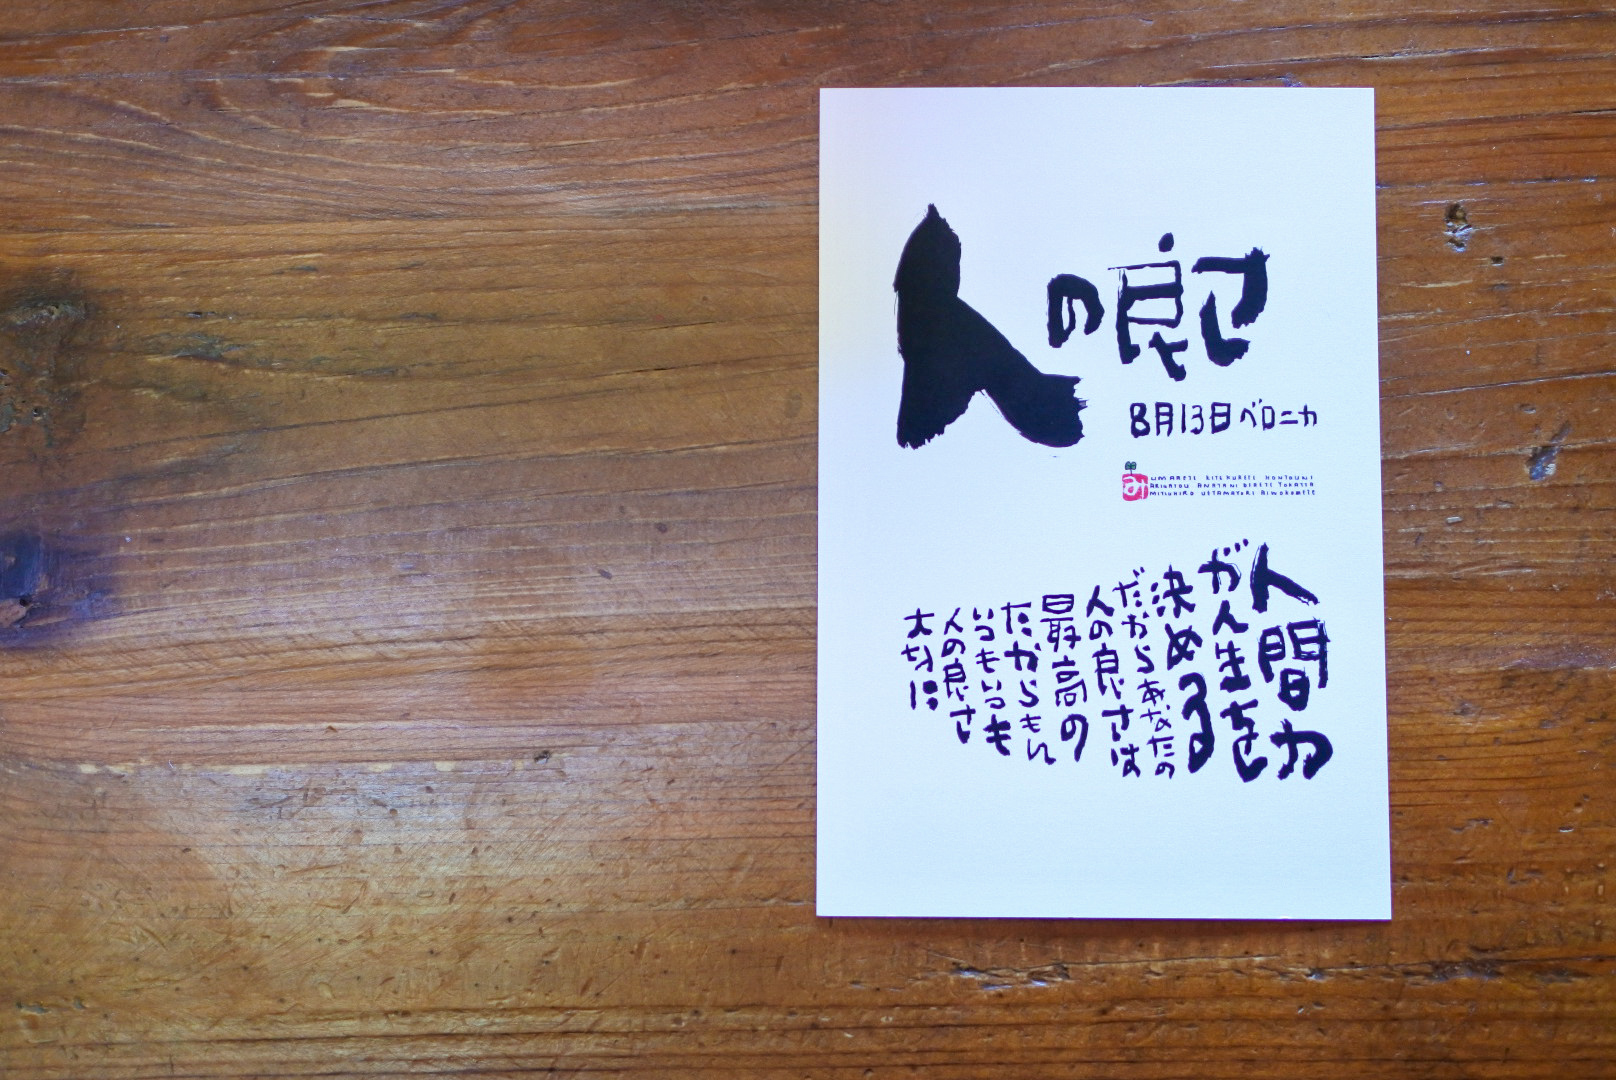 人の良さ
8月13日ベロニカ
み
UMARETE KITEKURETE HONTOUNI
ARIGATOU ANATANI DEAETE YOKATTA
MITSUHIRO
人間力
が人生を
決める
だからあなたの
人の良さは
最高の
たからもん
いつもいつも
人の良さ
大切に